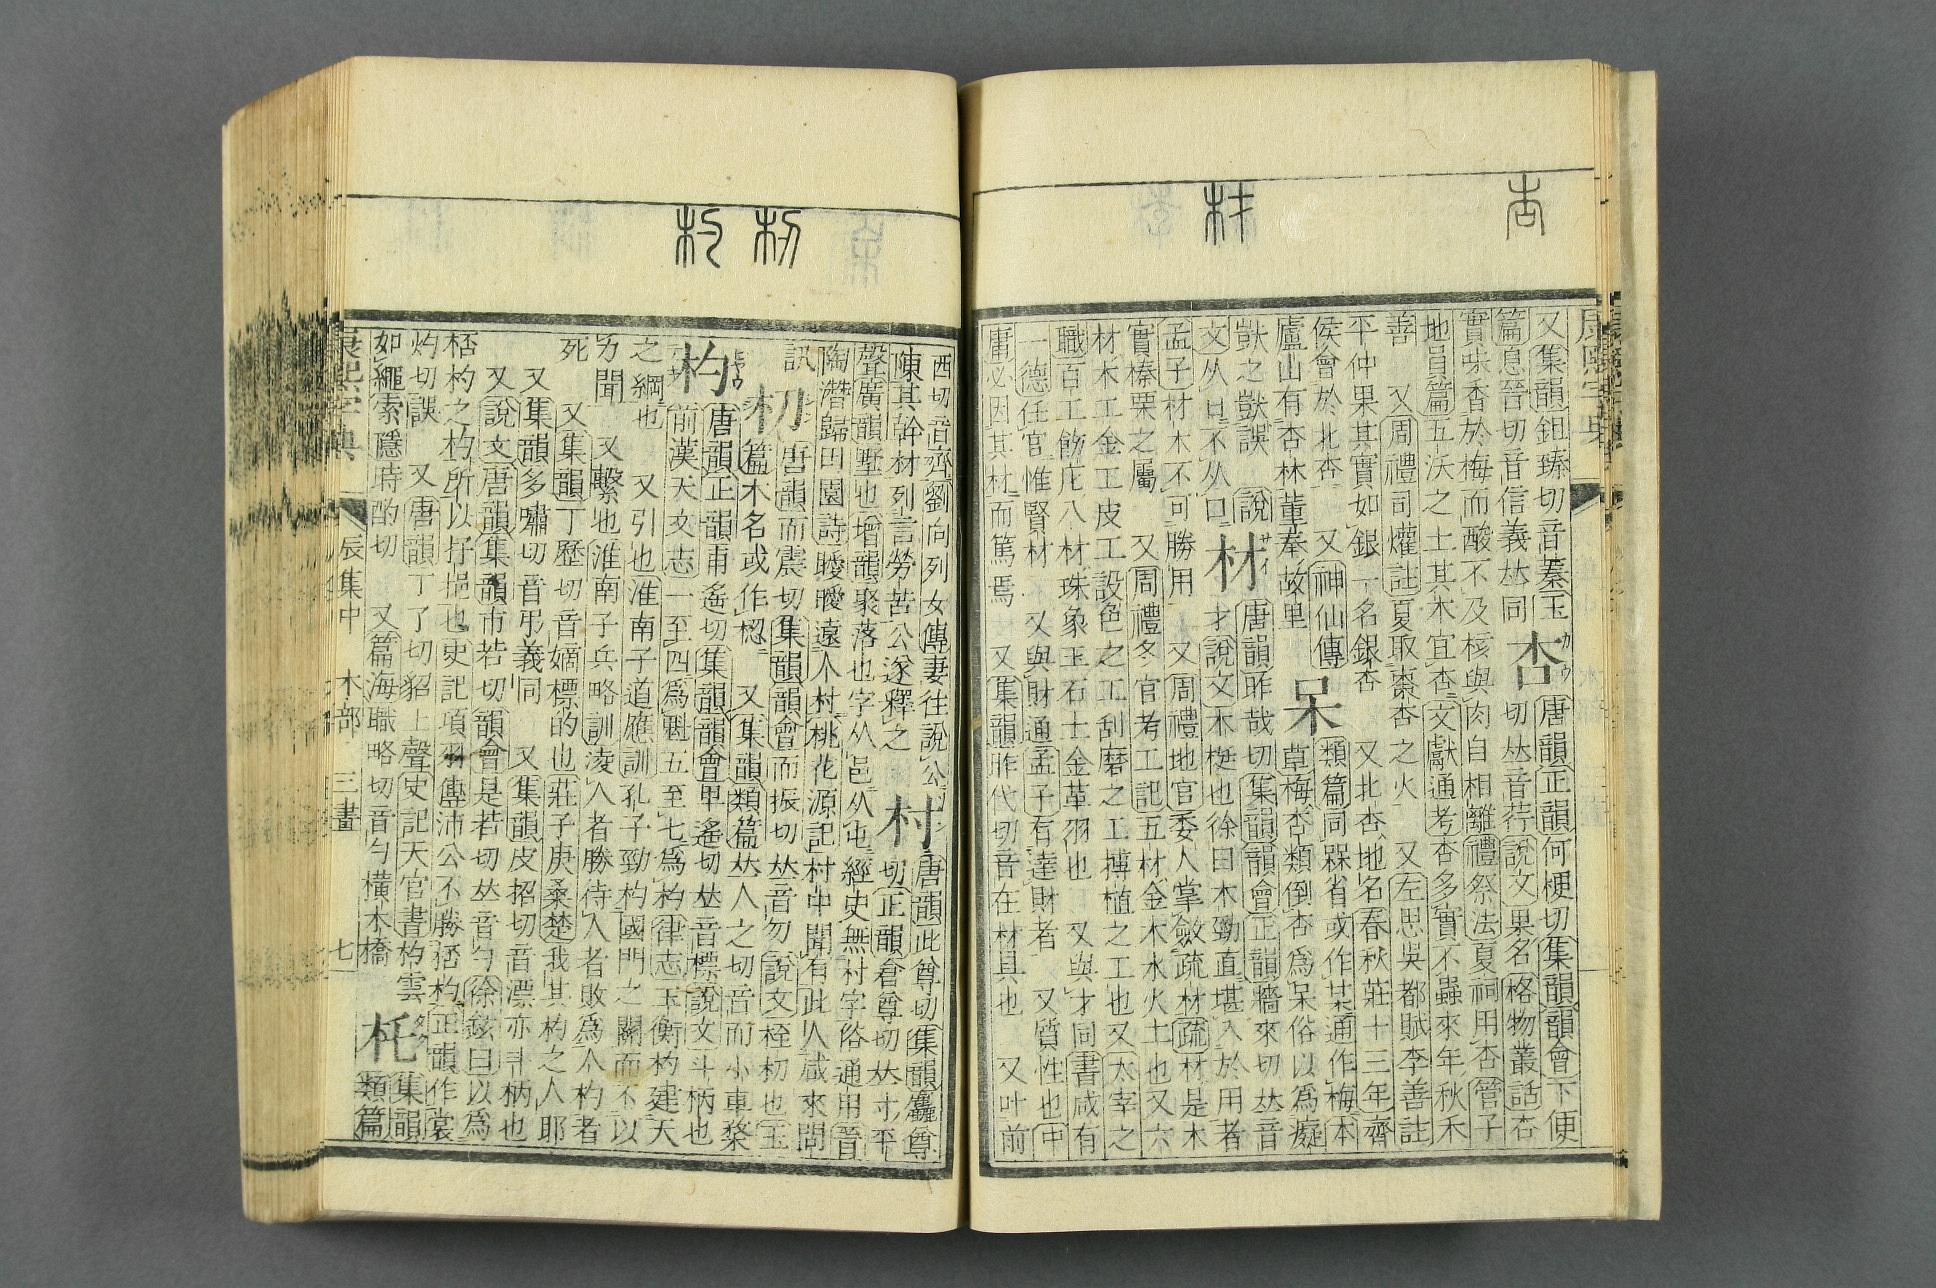 杏
材
又集韻鉏臻切音蓁玉
篇息晉切音信義𠀤同
杏
唐韻正韻何梗切集韻韻會下便
切𠀤音荇說文果名格物叢話杏
實味香於梅而酸不及核與肉自相離禮祭法夏祠用杏管子
地員篇五沃之土其木宜杏文獻通考杏多實不蟲來年秋禾
善 又周禮司爟註夏取棗杏之火 又左思吳都賦李善註
平仲果其實如銀一名銀杏 又北杏地名春秋莊十三年齊
侯會於北杏 又神仙傳
盧山有杏林董奉故里
呆
類篇同槑省或作某通作梅本
草梅杏類倒杏爲呆俗以爲癡
獃之獃誤 說
文从口不从口
材
唐韻昨哉切集韻韻會正韻牆來切𠀤音
才說文木梃也徐曰木勁直堪入於用者
孟子材木不可勝用 又周禮地官委人掌斂疏材疏材是木
實榛栗之屬 又周禮冬官考工記五材金木水火土也又六
材木工金工皮工設色之工刮磨之工摶植之工也又太宰之
職百工飭庀八材珠象玉石土金革羽也 又與才同書咸有
一德任官惟賢材 又與財通孟子有達財者 又質性也中
庸必因其材而篤焉 又集韻昨代切音在材具也 又叶前
朷
杓
西切音齊劉向列女傳妻往說公
陳其幹材列言勞苦公遂釋之
村
唐韻此尊切集韻麤尊
切正韻倉尊切𠀤寸平
聲廣韻墅也增韻聚落也字从邑从屯經史無村字俗通用晉
陶潛歸田園詩曖曖遠人村桃花源記村中聞有此人咸來問
訊
杒
唐韻而震切集韻韻會而振切𠀤音勿說文桎杒也玉
篇木名或作梕 又集韻類篇𠀤人之切音而小車棃
杓
唐韻正韻甫遙切集韻韻會𢍰遙切𠀤音標說文斗柄也
前漢天文志一至四爲魁五至七爲杓律志玉衡杓建天
之綱也 又引也淮南子道應訓孔子勁杓國門之關而不以
力聞 又繫也淮南子兵略訓淩人者勝待人者敗爲人杓者
死 又集韻丁歷切音嫡標的也莊子庚桑楚我其杓之人耶
又集韻多嘯切音弔義同 又集韻皮招切音漂亦斗柄也
又說文唐韻集韻市若切韻會是若切𠀤音勺徐鉉曰以爲
桮杓之杓所以抒挹也史記項羽傳沛公不勝桮杓正韻作裳
灼切誤 又唐韻丁了切貂上聲史記天官書杓雲
如繩索隱時酌切 又篇海職略切音勺橫木橋
杔
集韻
類篇
康熙字典 辰集中 木部 三畫 七